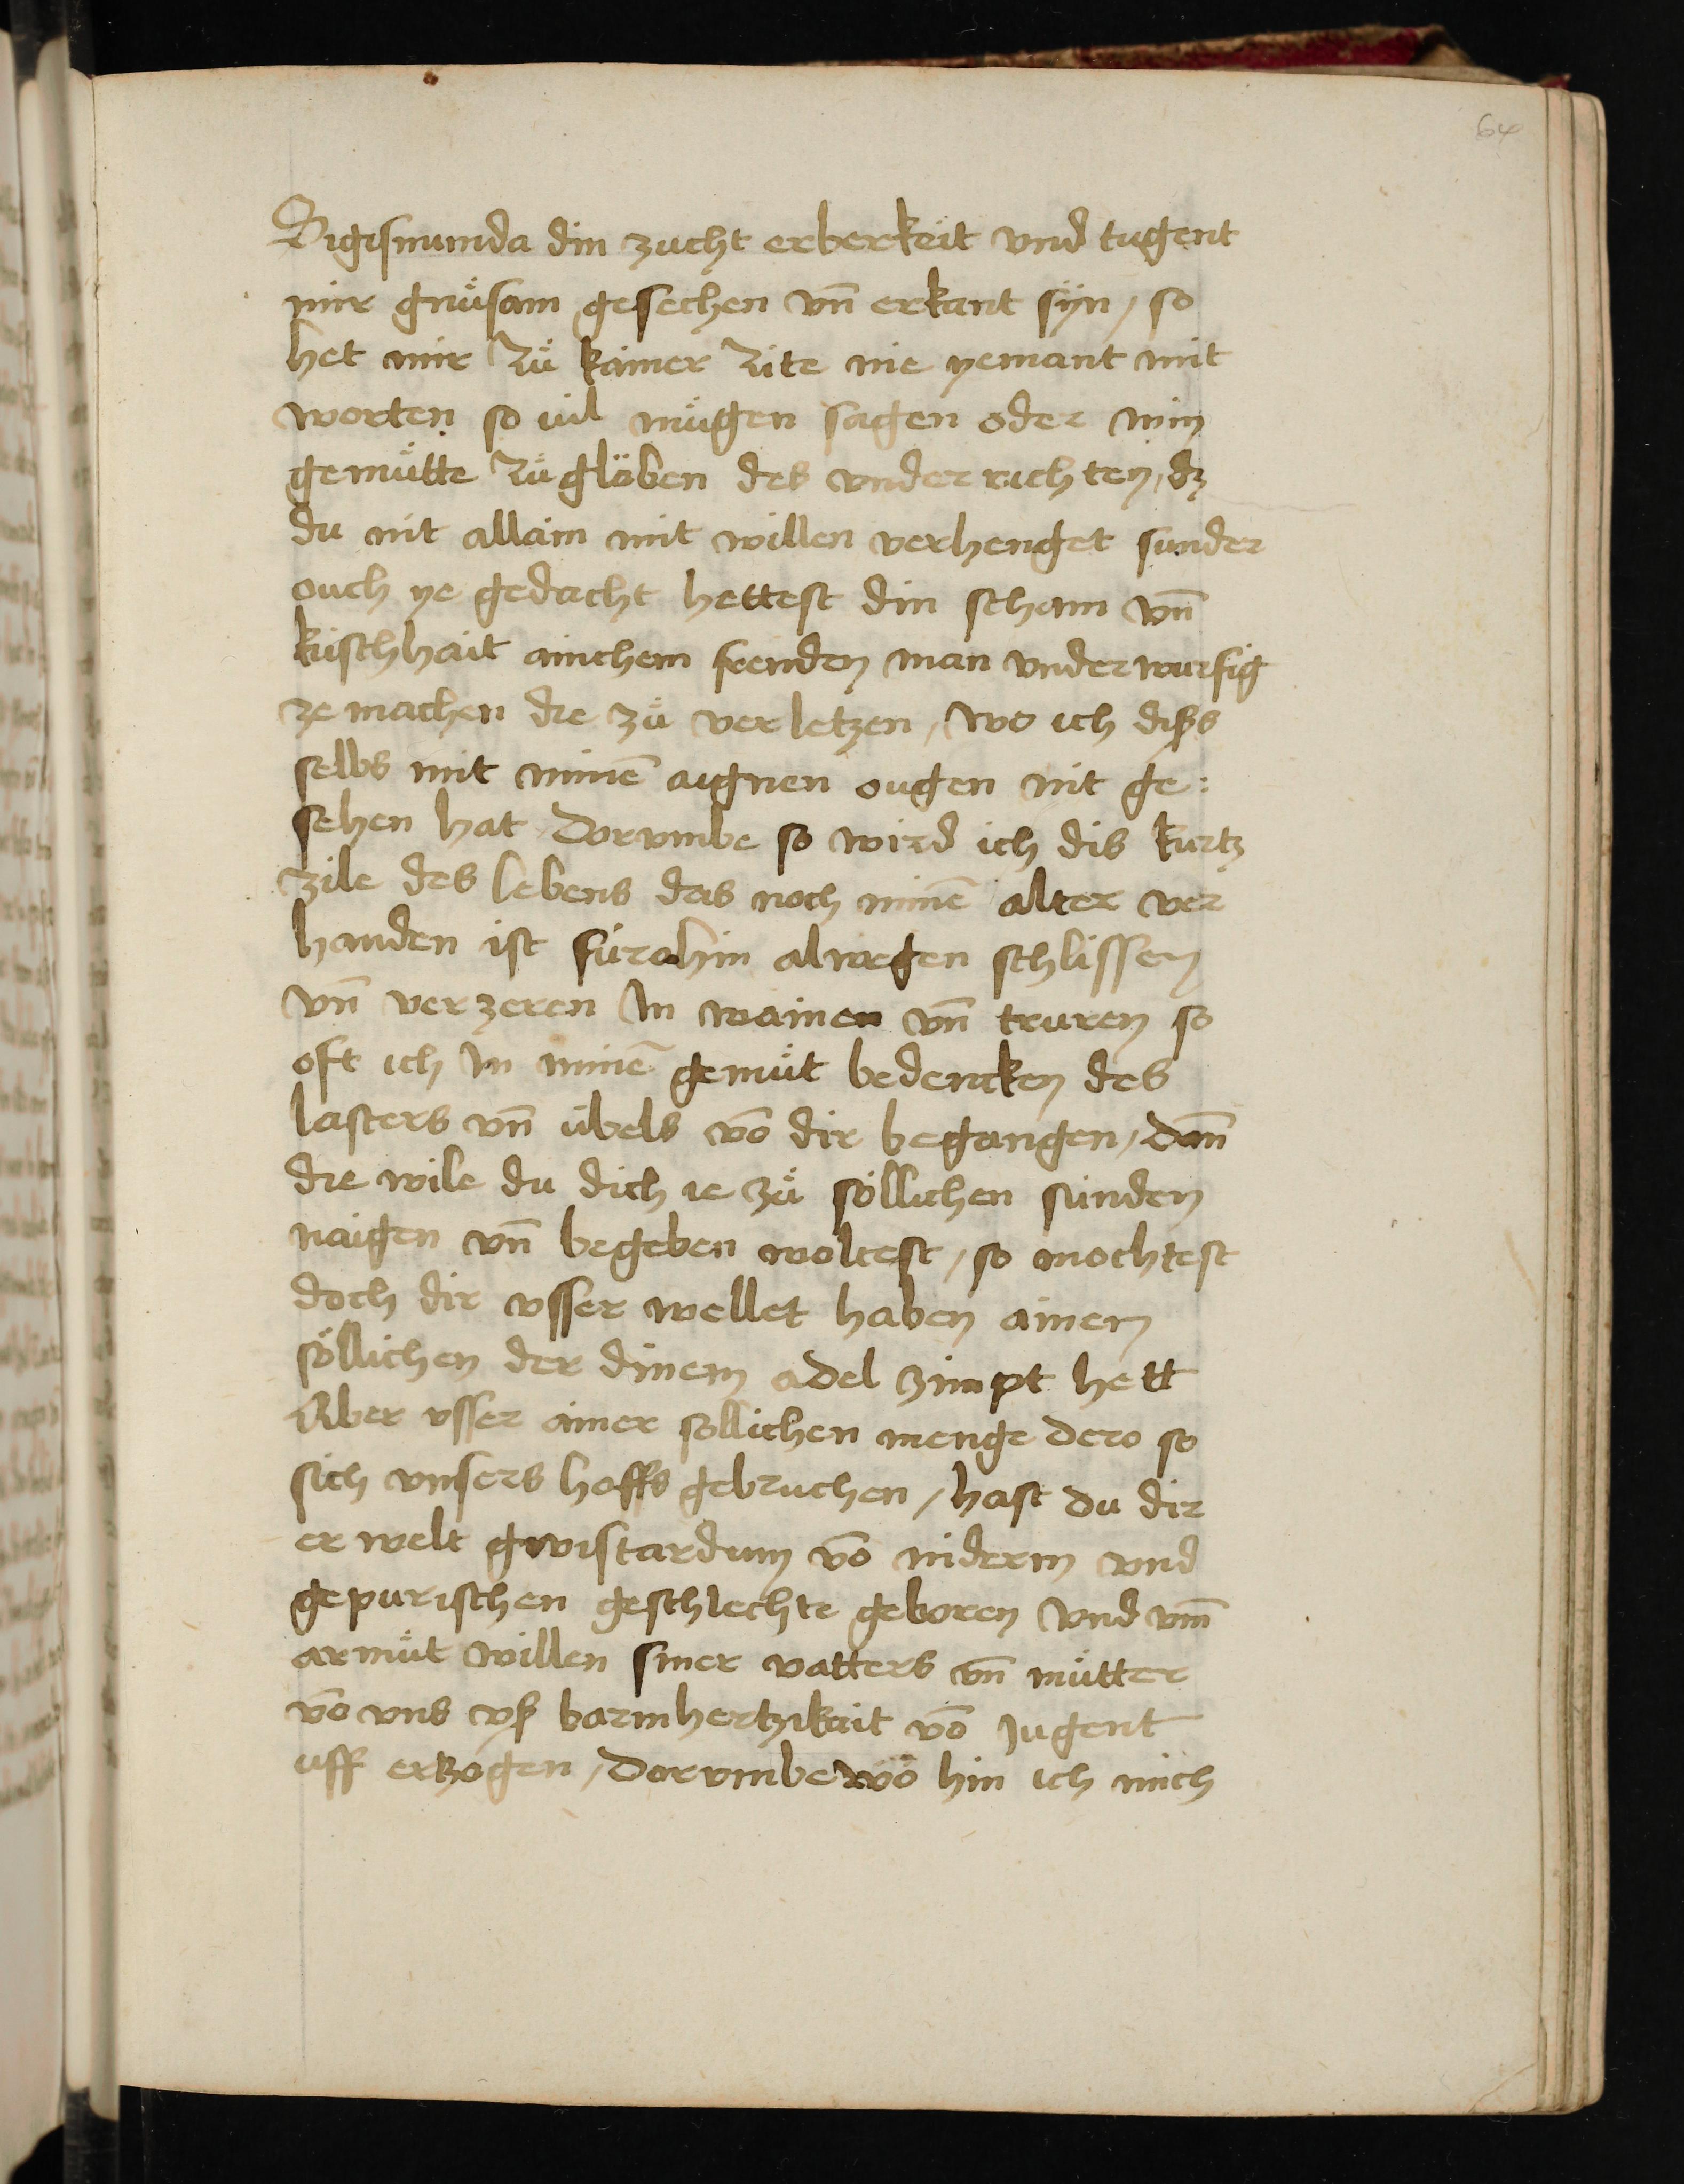 64
Sigismunda din zucht erberkeit vnd tugent
mir gnuͦsam gesechen vn̄ erkant syͤn / so
het mir Zuͦ kainer Zite nie yemant mit
worten so uil muͤgen sagen oder min
gemuͤtte Zuͦ gloͤben des vnderrichten, dz
du nit allain mit willen verhenget sunder
ouch ye gedacht hettest din scham vn̄
kuschhait ainchem fremden man vnderwurfig
ze machen die zuͦ verletzen, wo ich diſss
selbs mit minē aignen ougen nit ge:
sehen hat Dorvmbe so wird ich dis kurtz
zile des lebens das noch minē alter ver
handen ist fúrohin alwegen schlissen
vn̄ verzeren In wainen vn̄ truren so
oft ich In minē gemuͤt bedencken des
lasters vn̄ úbels vō dir begangen / dañ
die wile du dich ie zuͦ soͤllichen sunden
naigen vn̄ begeben woltest / so mochtest
doch dir vsser wellet haben ainen
soͤllichen der dinem adel zimpt hett
Aber vsser ainer sollichen menge dero so
sich vnsers hoffs gebruchen / hast du dir
erwelt gwistardum vō niderm vnd
gepurischen geschlechte geboren vnd vm̄
armuͤt willen siner vatters vn̄ muͦtter
vō vns vſs barmhertzikait vō Jugent
uff erzogen / Dorvmbe wo hin ich mich